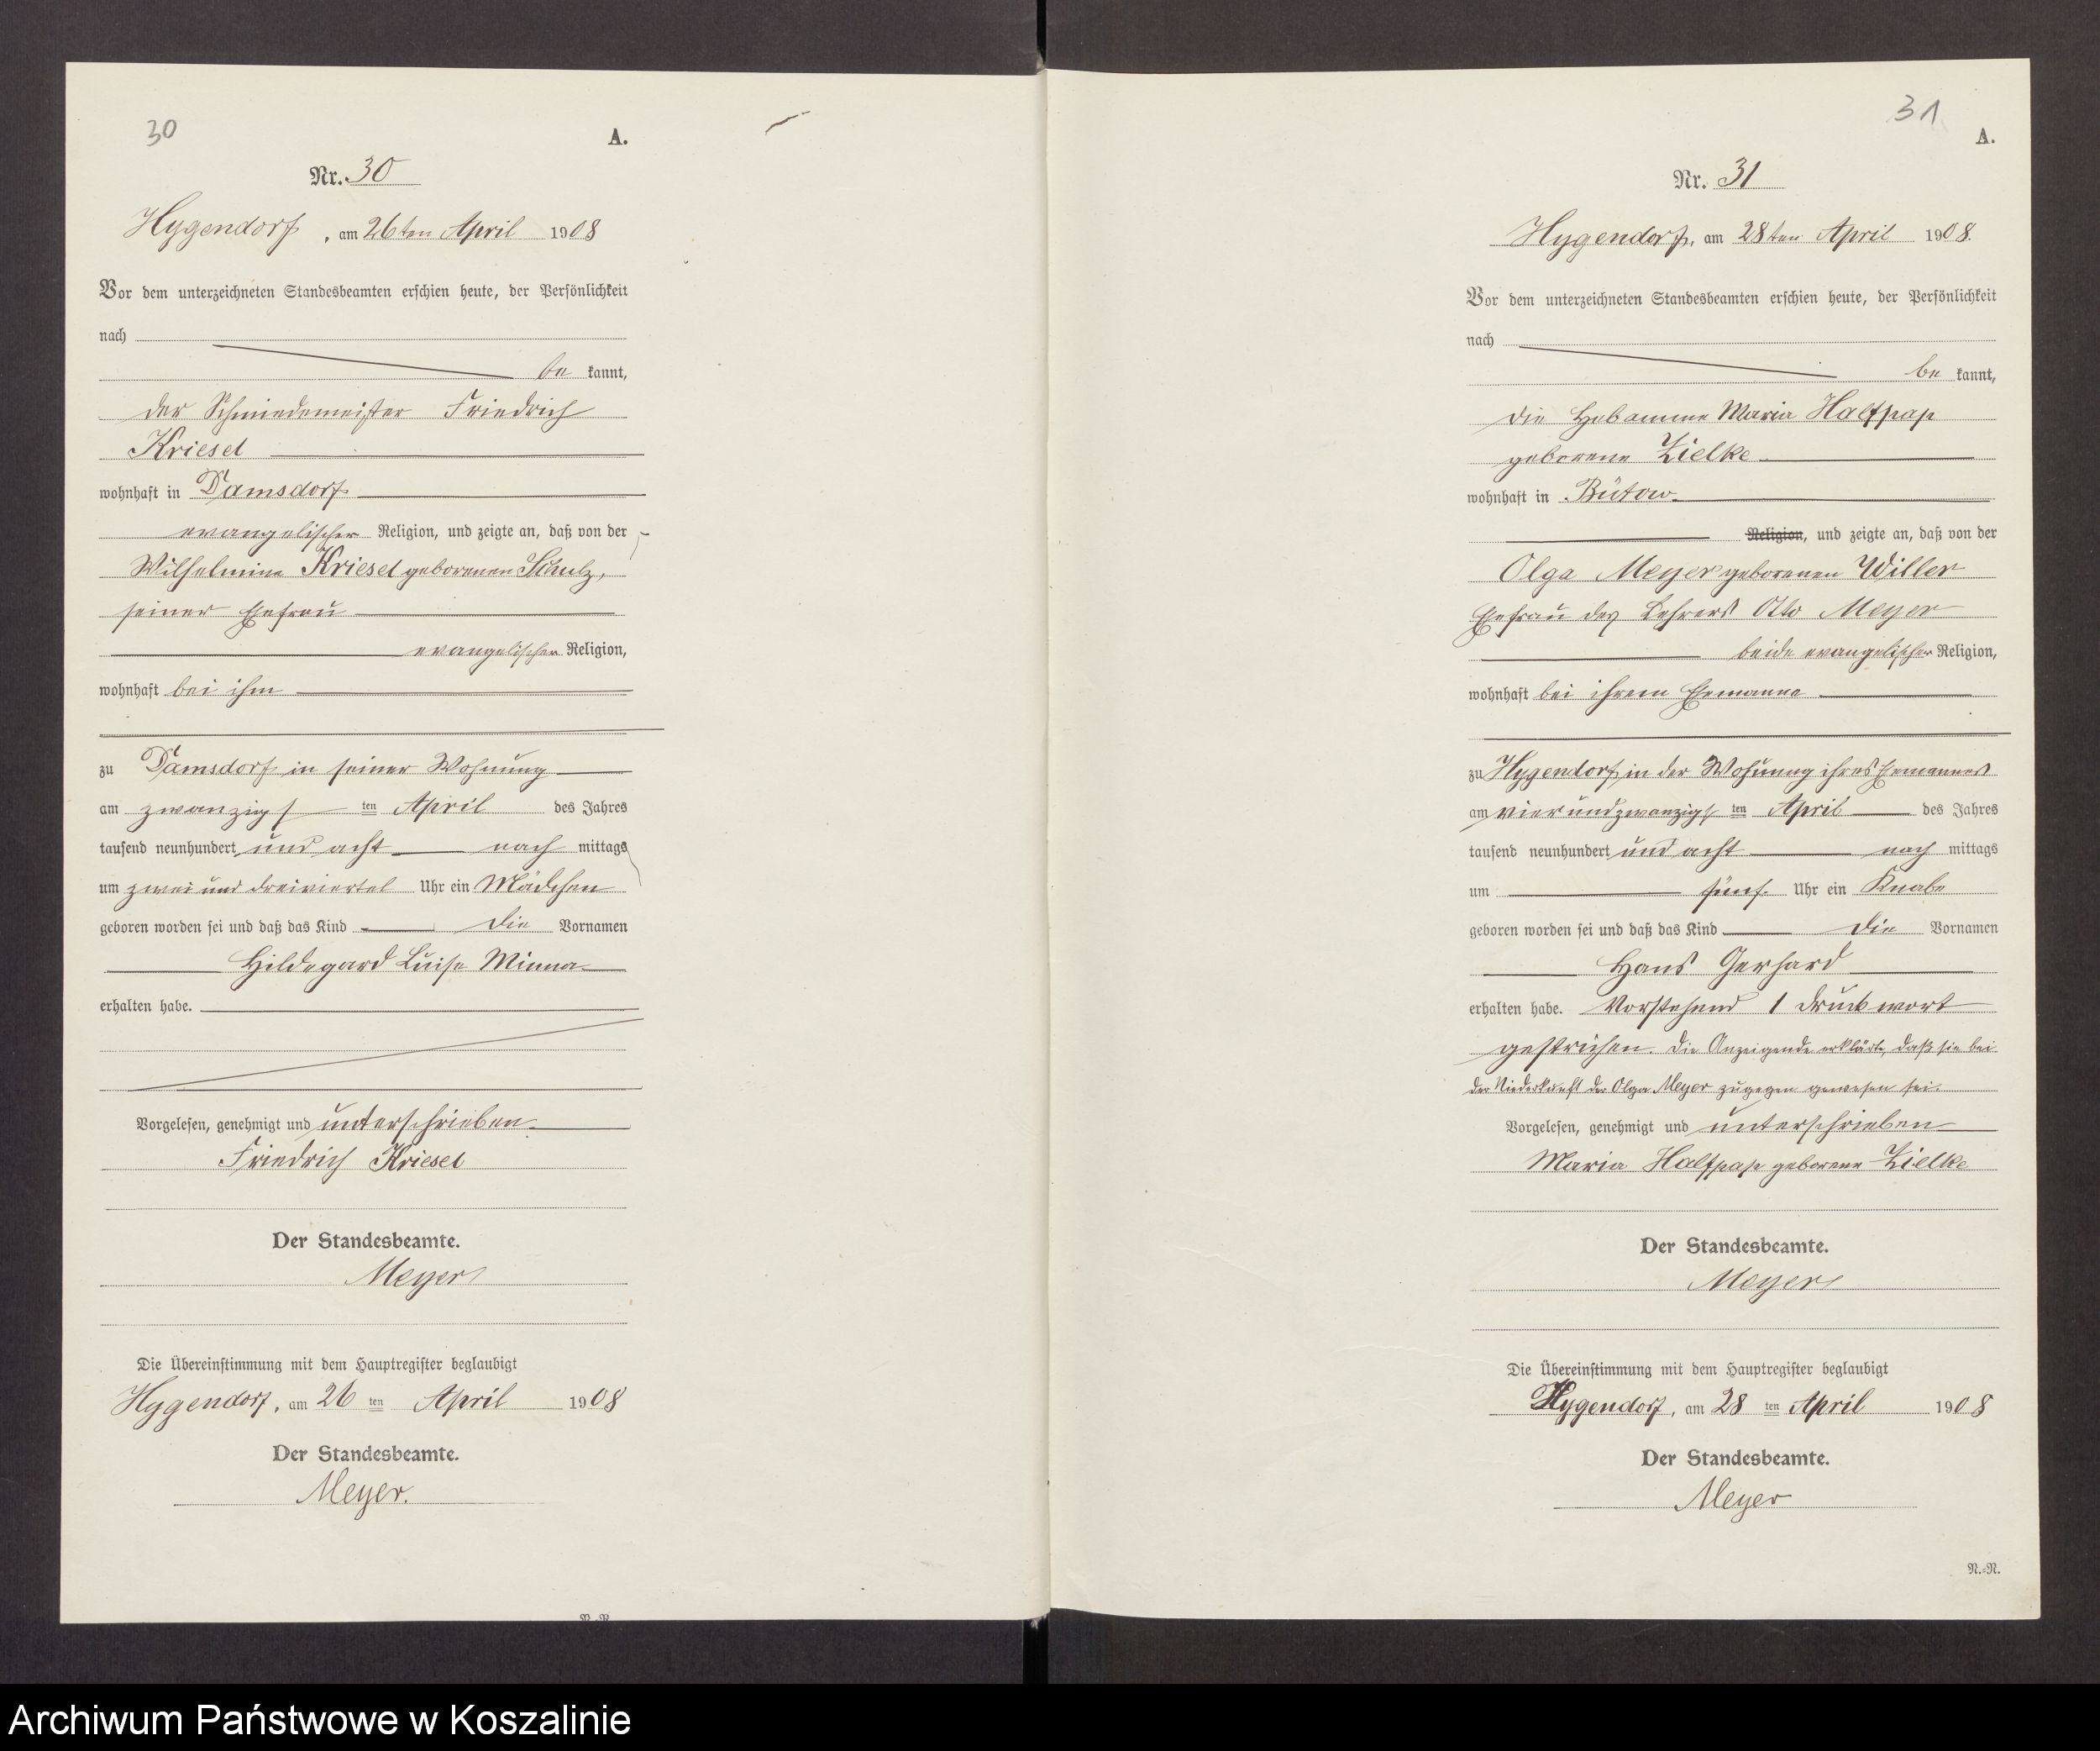 30
A.
Nr. 30
Hygendorf, am 26ten April 1908
Vor dem unterzeichneten Standesbeamten erschien heute, der Persönlichkeit
nach
be kannt,
der Schmiedemeister Friedrich
Kriesel
wohnhaft in Damsdorf
evangelischer Religion, und zeigte an, daß von der
Wilhelmine Kriesel geborenen Schulz,
seiner Ehefrau
evangelischer Religion,
wohnhaft bei ihm
zu Damsdorf in seiner Wohnung
am zwanzigsten April des Jahres
tausend neunhundert und acht nach mittags
um zwei und dreiviertel Uhr ein Mädchen
geboren worden sei und daß das Kind die Vornamen
Hildegard Luise Minna
erhalten habe.
Vorgelesen, genehmigt und unterschrieben
Friedrich Kriesel
Der Standesbeamte.
Meyer
Die Übereinstimmung mit dem Hauptregister beglaubigt
Hygendorf, am 26 ten April 1908
Der Standesbeamte.
Meyer.
31
A.
Nr. 31
Hygendorf, am 28ten April 1908.
Vor dem unterzeichneten Standesbeamten erschien heute, der Persönlichkeit
nach
be kannt,
die Hebamme Maria Halfpap
geborene Zielke
wohnhaft in Bütow
Religion, und zeigte an, daß von der
Olga Meyer geborenen Willer
Ehefrau des Lehrers Otto Meyer
beide evangelischer Religion,
wohnhaft bei ihrem Ehemanne
zu Hygendorf in der Wohnung ihres Ehemannes
am vierundzwanzigsten April des Jahres
tausend neunhundert und acht nach mittags
um fünf Uhr ein Knabe
geboren worden sei und daß das Kind die Vornamen
Hans Gerhard
erhalten habe. Vorstehend 1 Druckwort
gestrichen. Die Anzeigende erklärte, daß sie bei
der Niederkunft der Olga Meyer zugegen gewesen sei.
Vorgelesen, genehmigt und unterschrieben
Maria Halfpap geborene Zielke
Der Standesbeamte.
Meyer
Die Übereinstimmung mit dem Hauptregister beglaubigt
Hygendorf, am 28 ten April 1908
Der Standesbeamte.
Meyer
N.-N.
Archiwum Państwowe w Koszalinie